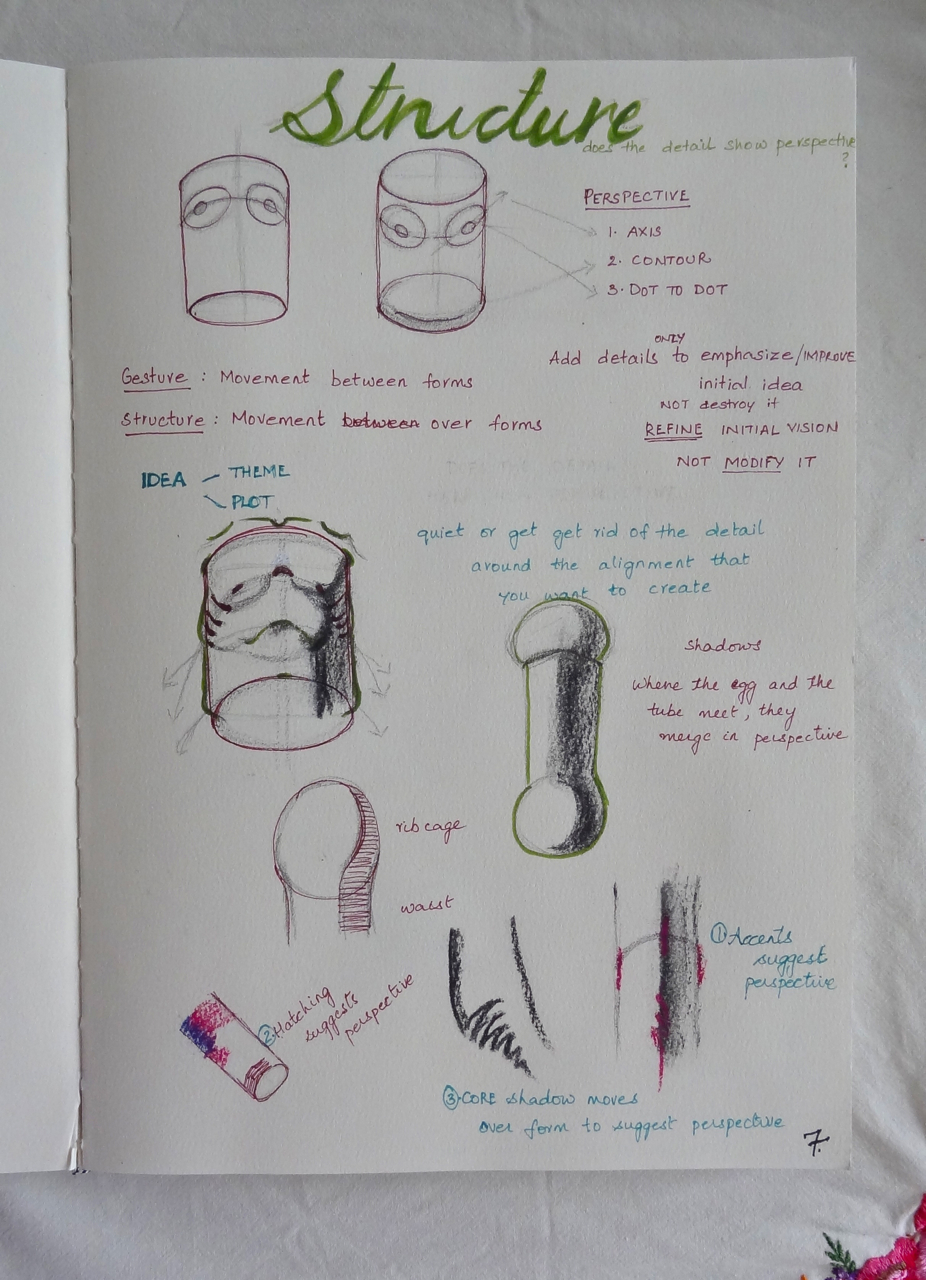 Structure
does the detail show perspective
?
PERSPECTIVE
1. AXIS
2. CONTOUR
3. DOT TO DOT
ONLY
Add details to emphasize/IMPROVE
initial idea
NOT destroy it
REFINE INITIAL VISION
NOT MODIFY IT
Gesture : Movement between forms
Structure : Movement between over forms
IDEA
THEME
PLOT
quiet or get get rid of the detail
around the alignment that
you want to create
shadows
where the egg and the
tube meet, they
merge in perspective
rib cage
waist
① Accents
suggest
perspective
② Hatching
suggests
perspective
③ CORE shadow moves
over form to suggest perspective
7.